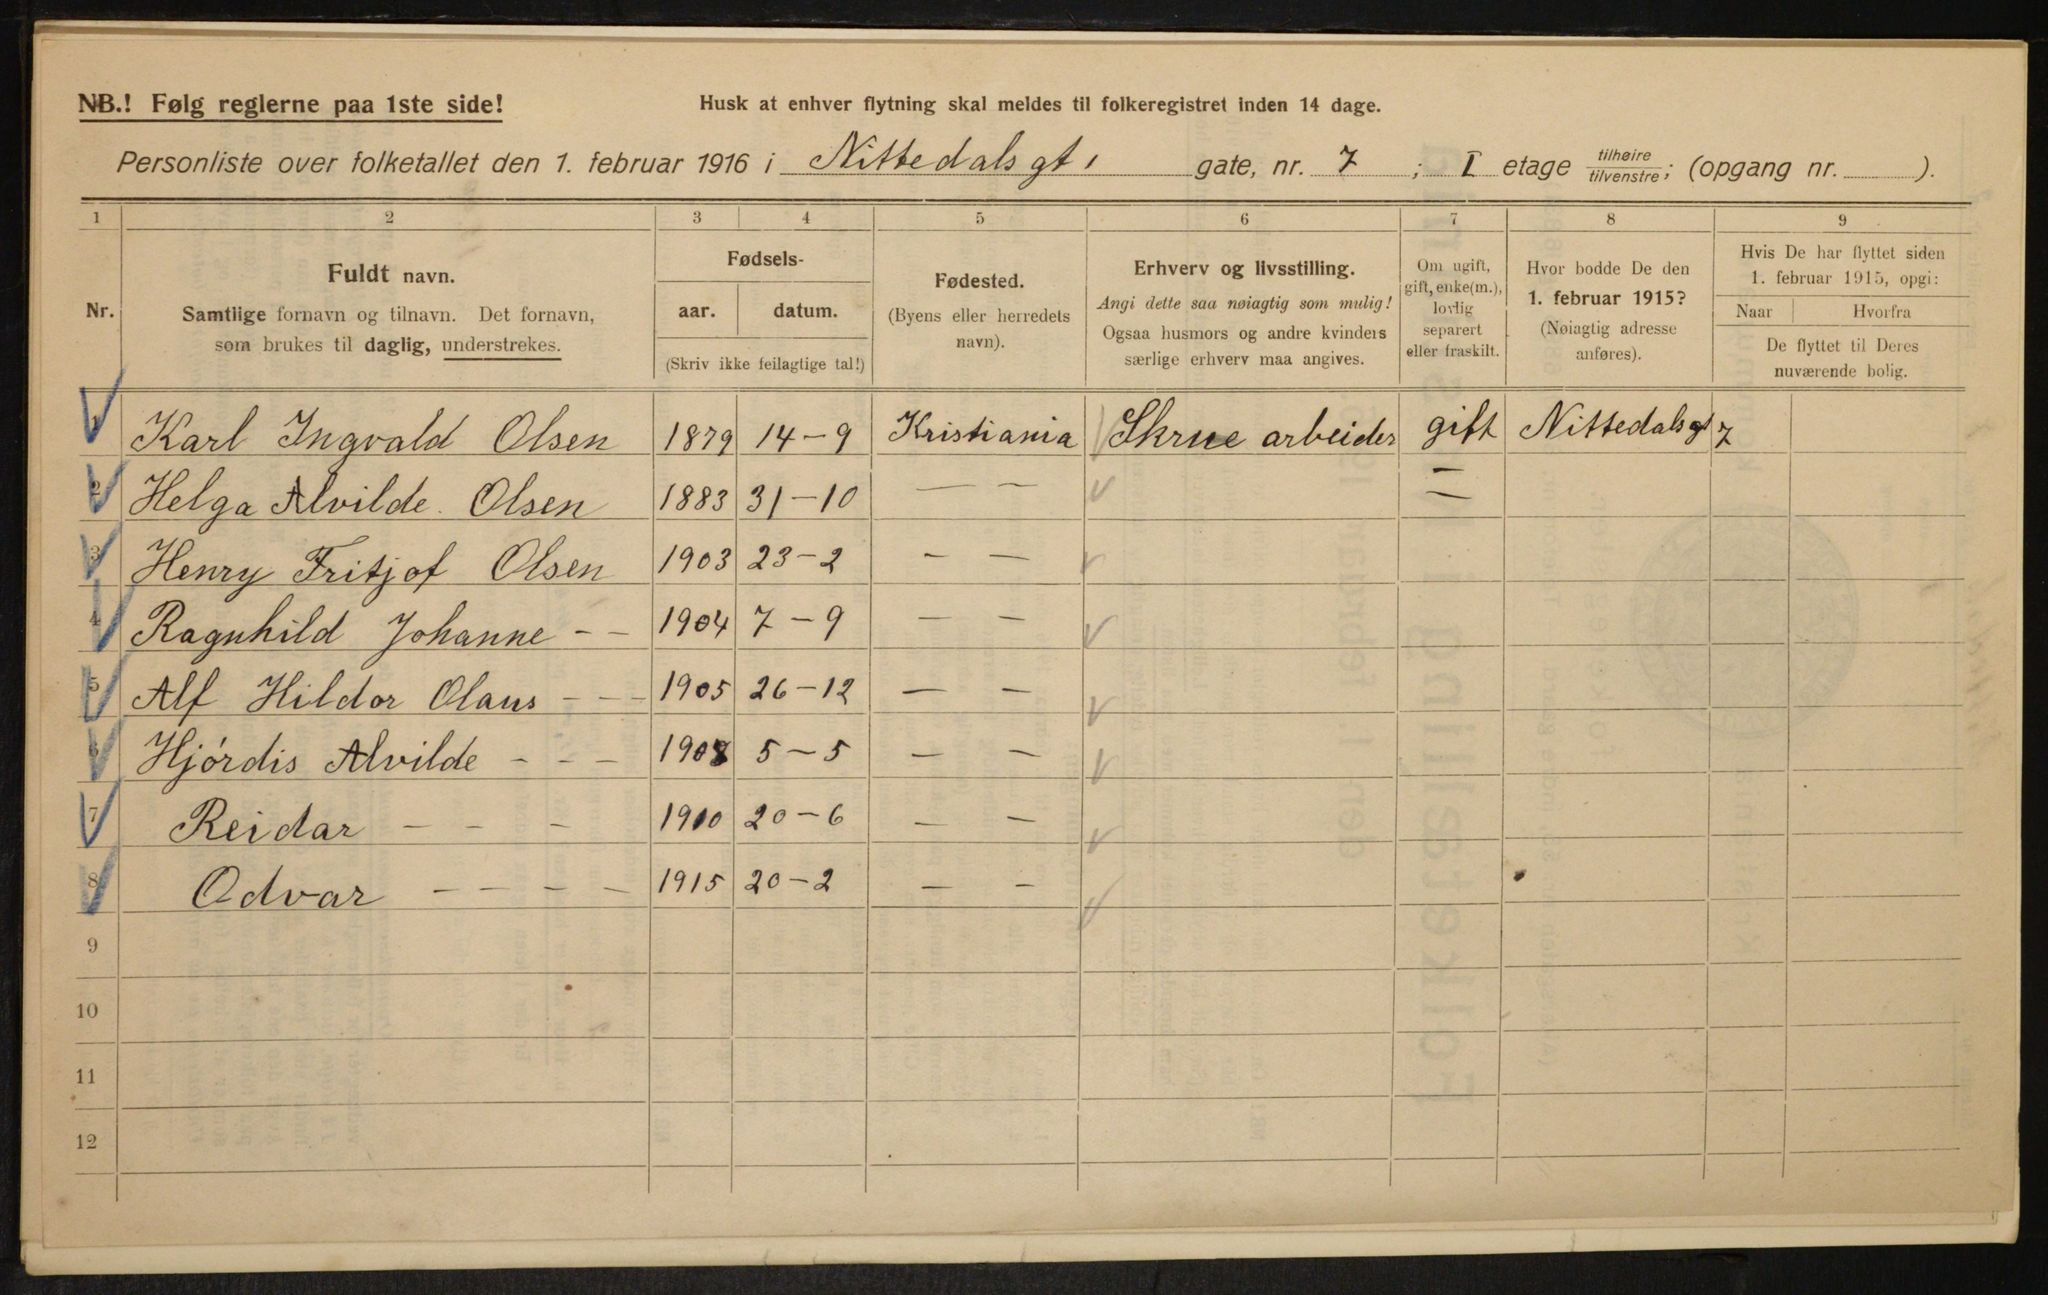 NB.! Følg reglerne paa 1ste side! Husk at enhver flytning skal meldes til folkeregistret inden 14 dage.
Personliste over folketallet den 1. februar 1916 i Nittedalsgt. gate, nr. 7 ; I etage tilhøire/tilvenstre; (opgang nr. ).
1 2 3 4 5 6 7 8 9
Nr.
Fuldt navn.
Samtlige fornavn og tilnavn. Det fornavn,
som brukes til daglig, understrekes.
Fødsels-
aar. datum.
(Skriv ikke feilagtige tal!)
Fødested.
(Byens eller herredets
navn).
Erhverv og livsstilling.
Angi dette saa nøiagtig som mulig!
Ogsaa husmors og andre kvinders
særlige erhverv maa angives.
Om ugift,
gift, enke(m.),
lovlig
separert
eller fraskilt.
Hvor bodde De den
1. februar 1915?
(Nøiagtig adresse
anføres).
Hvis De har flyttet siden
1. februar 1915, opgi:
Naar Hvorfra
De flyttet til Deres
nuværende bolig.
1 Karl Ingvald Olsen 1879 14-9 Kristiania Skrue arbeider gift Nittedalsgt 7
2 Helga Alvilde. Olsen 1883 31-10 — — —
3 Henry Fritjof Olsen 1903 23-2 — —
4 Ragnhild Johanne - - 1904 7-9 — —
5 Alf Hildor Olaus - - - 1905 26-12 — —
6 Hjördis Alvilde - - - 1908 5-5 — —
7 Reidar - - - 1910 20-6 — —
8 Odvar - - - - 1915 20-2 — —
9
10
11
12